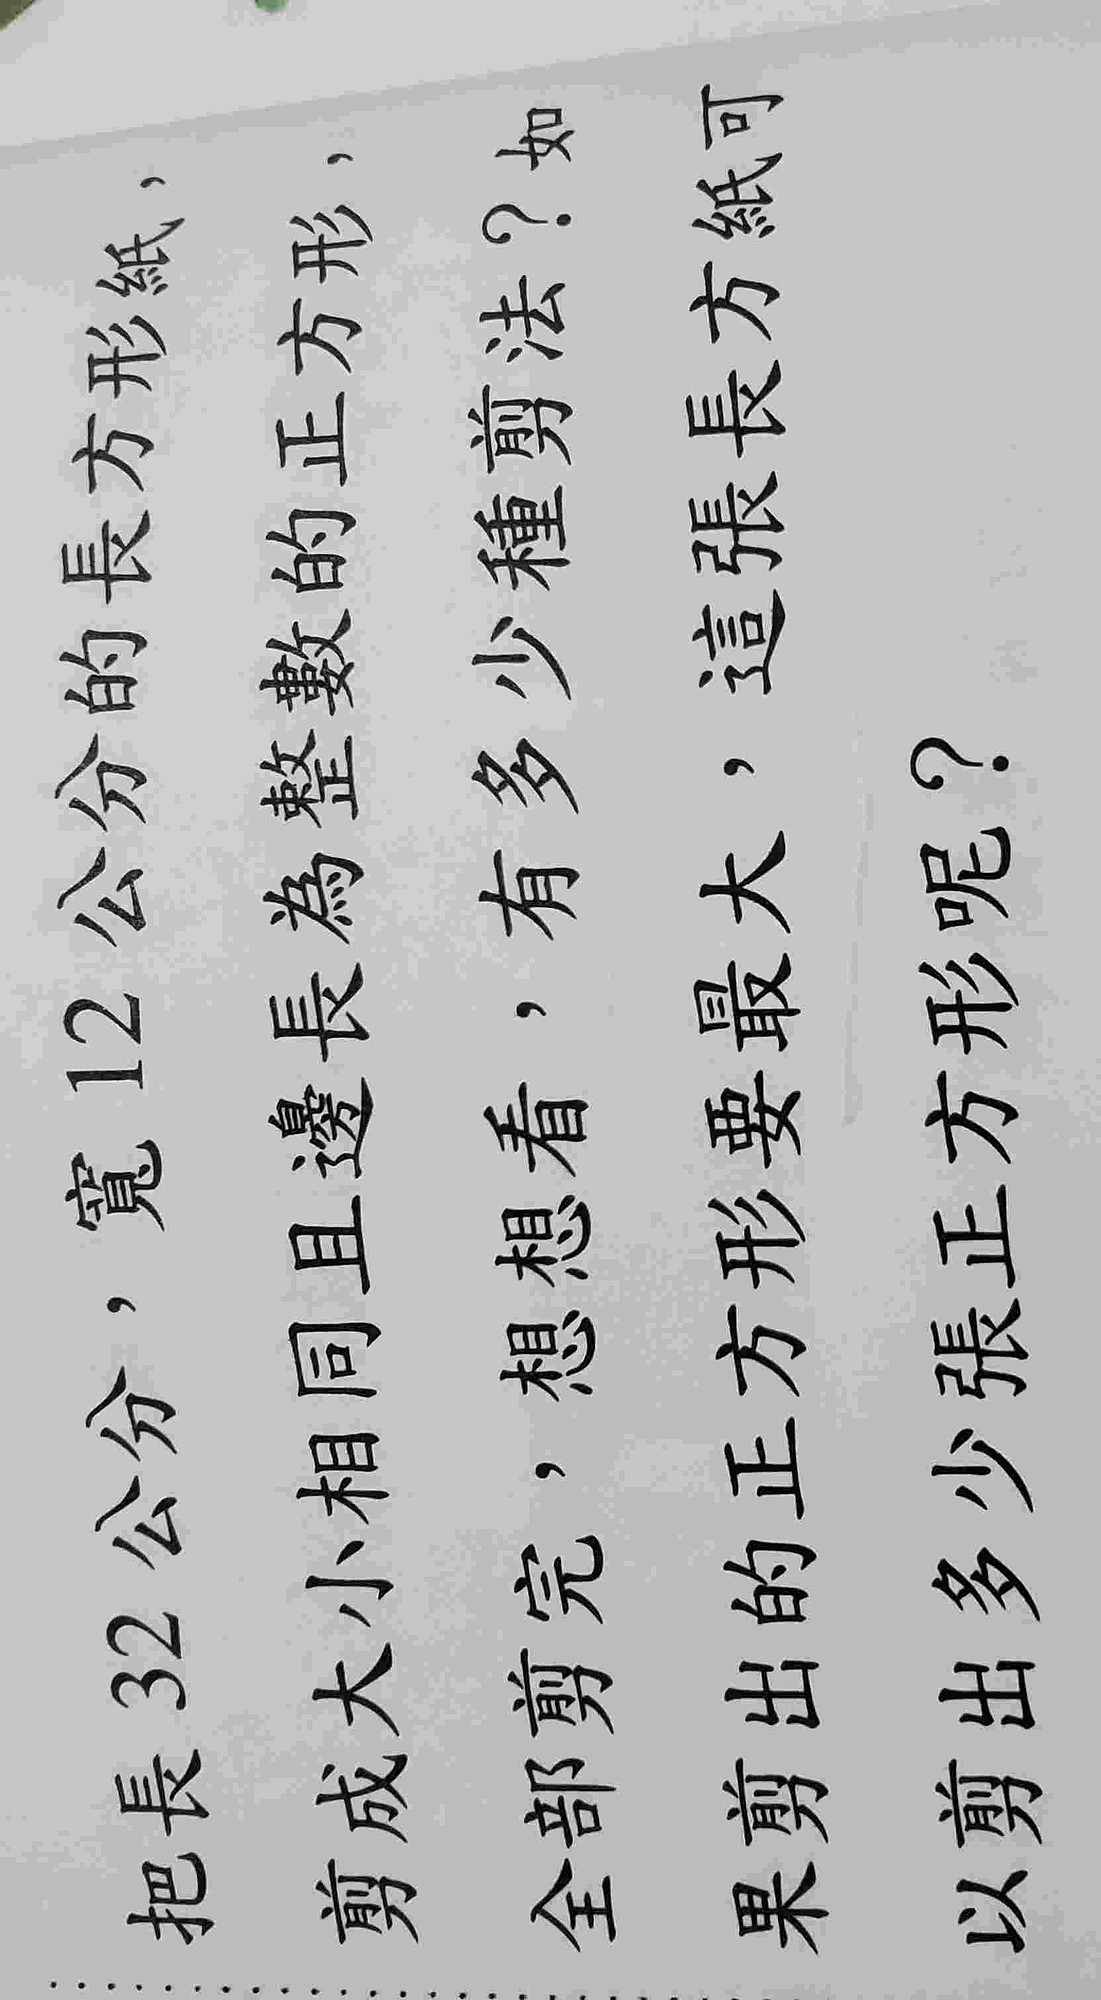 把長 32 公分，寬 12 公分的長方形紙，
剪成大小相同且邊長為整數的正方形，
全部剪完，想想看，有多少種剪法？如
果剪出的正方形要最大，這張長方紙可
以剪出多少張正方形呢？